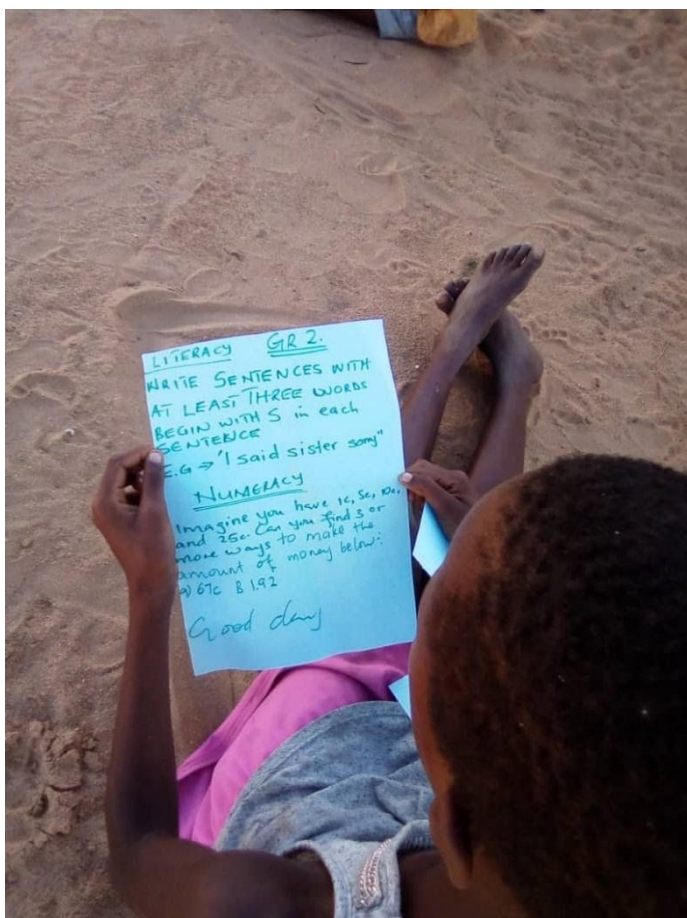 LITERACY GR 2.
WRITE SENTENCES WITH
AT LEAST THREE WORDS
BEGIN WITH S in each
SENTENCE
E.G → "I said sister sorry"
NUMERACY
Imagine you have 1c, 5c, 10c,
and 25c. Can you find 3 or
more ways to make the
amount of money below:
a) 67c B 1.92
Good day